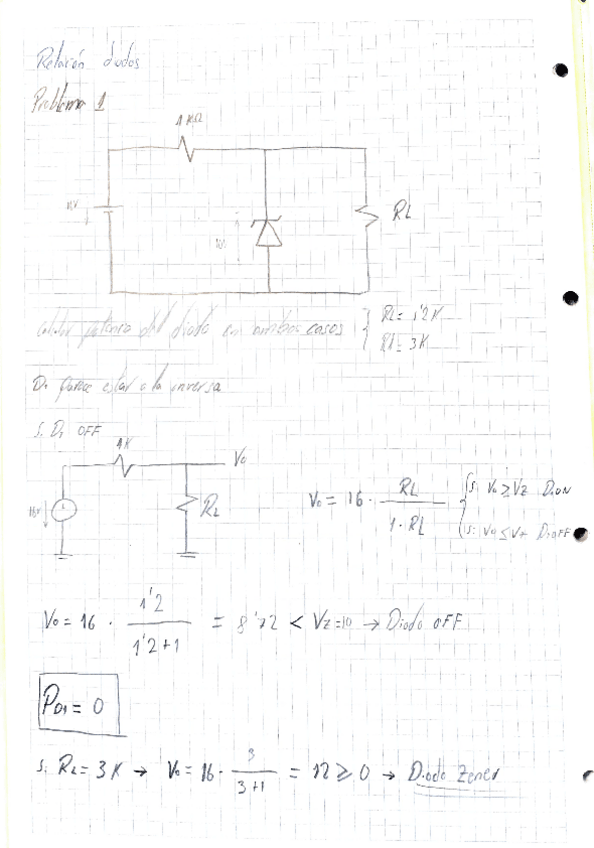 Relación diodos
Problema 1
1 KΩ
RL
Calcular potencia del diodo en ambos casos { RL = 1'2 K
RL = 3 K
D1 parece estar a la inversa
Si D1 OFF
1K
Vo
16V
RL
Vo = 16 · RL / 1 · RL { Si Vo ≥ Vz D1 ON
Si Vo ≤ Vz D1 OFF
Vo = 16 · 1'2 / 1'2 + 1 = 8'72 < Vz = 10 → Diodo OFF
PD1 = 0
Si RL = 3 K → Vo = 16 · 3 / 3 + 1 = 12 ≥ 0 → Diodo Zener